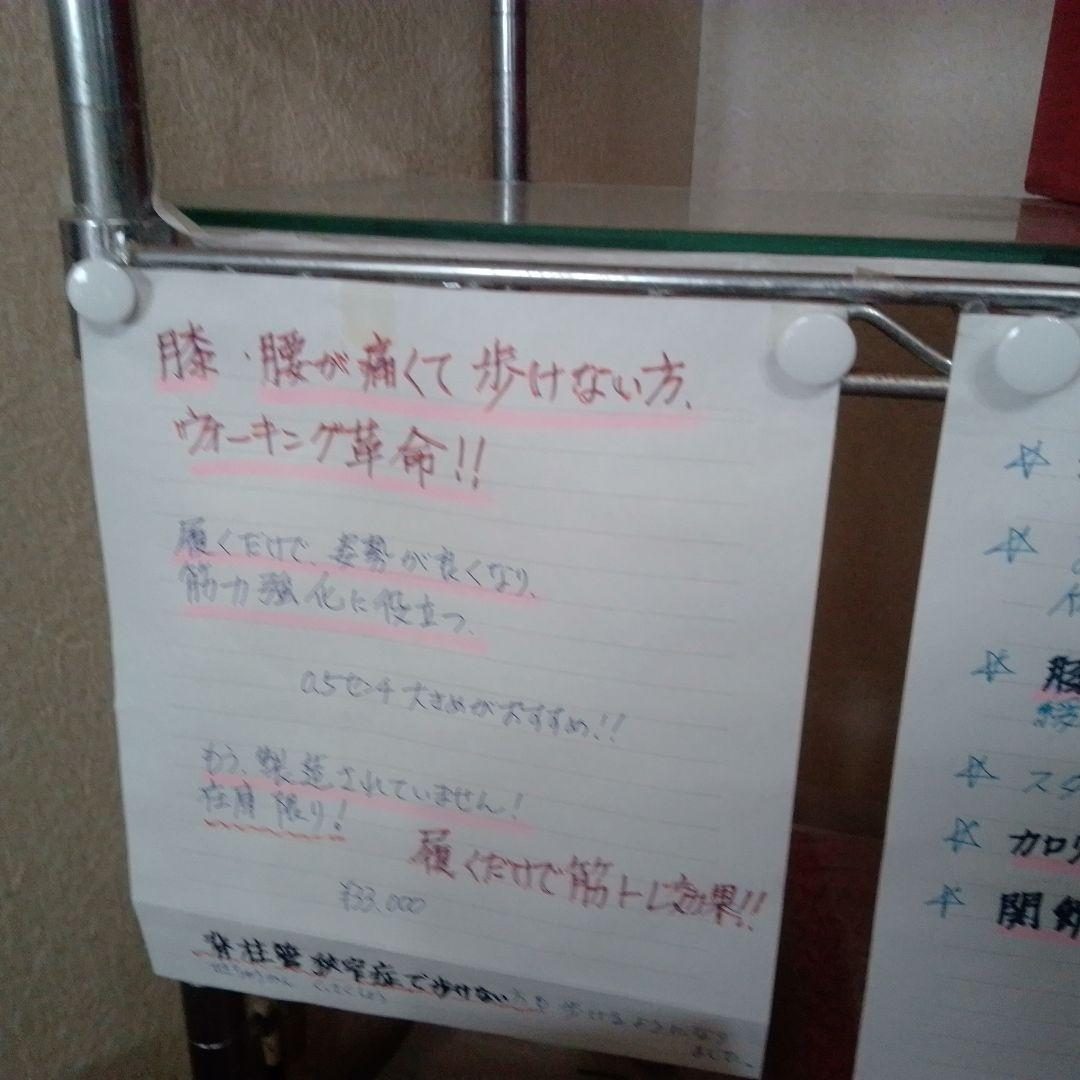 膝・腰が痛くて歩けない方、
ウォーキング革命!!
履くだけで、姿勢が良くなり、
筋力強化に役立つ、
0.5センチ大きめがおすすめ!!
もう、製造されていません!
在庫限り!
履くだけで筋トレ効果!!
¥33,000
脊柱管狭窄症で歩けない方も歩けるようになり
ました。
せきちゅうかん きょうさくしょう
膝
スタ
カロリ
関節